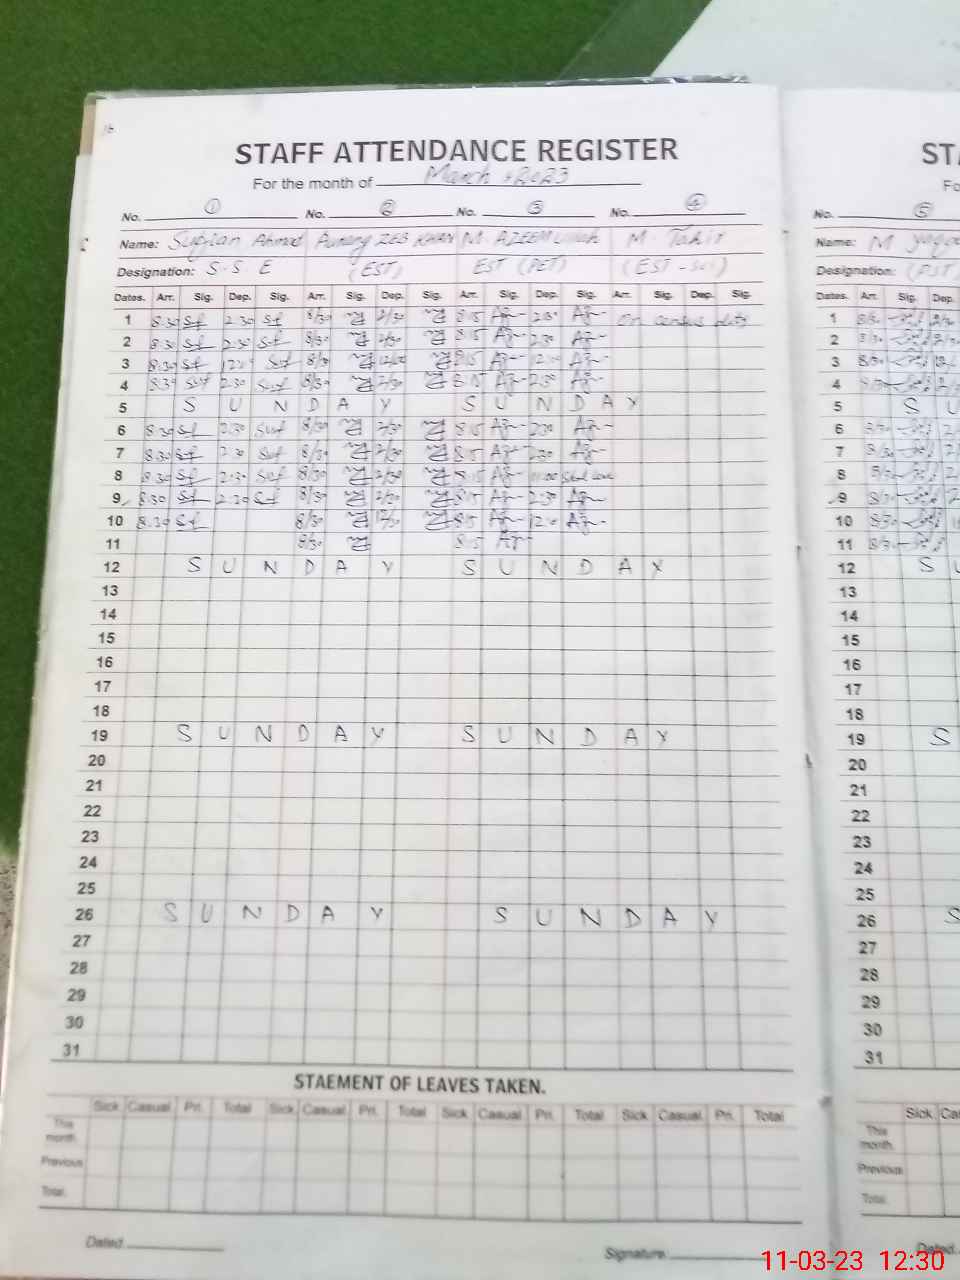 16
STAFF ATTENDANCE REGISTER
For the month of March 2023
No. 1 No. 2 No. 3 No. 4
Name: Sufian Ahmad Aurang ZEB KHAN M. AZEEM ullah M. Tahir
Designation: S.S.E (EST) EST (PET) (EST - Sci)
Dates. Arr. Sig. Dep. Sig. Arr. Sig. Dep. Sig. Arr. Sig. Dep. Sig. Arr. Sig. Dep. Sig.
1 8.30 2.30 8/30 2/30 8:15 2:30 On census duty
2 8.30 2.30 8/30 2/30 8:15 2:30
3 8.30 8/30 8:15
4 8.30 2.30 8/30 2/30 8:15 2:30
5 S U N D A Y S U N D A Y
6 8.30 2.30 8/30 2/30 8:15 2:30
7 8.30 2.30 8/30 2/30 8:15 2:30
8 8.30 2.30 8/30 2/30 8:15 11:00
9 8.30 2.30 8/30 2/30 8:15 2:30
10 8.30 8/30 8:15
11 8/30 8:15
12 S U N D A Y S U N D A Y
13
14
15
16
17
18
19 S U N D A Y S U N D A Y
20
21
22
23
24
25
26 S U N D A Y S U N D A Y
27
28
29
30
31
STAEMENT OF LEAVES TAKEN.
Sick Casual Pri. Total Sick Casual Pri. Total Sick Casual Pri. Total Sick Casual Pri. Total
This month.
Previous
Total.
Dated. Signature.
ST
Fo
No. 5
Name: M
Designation: (PST)
Dates. Arr. Sig. Dep.
1
2
3
4
5 S U
6
7
8
9
10
11
12 S U
13
14
15
16
17
18
19 S
20
21
22
23
24
25
26 S
27
28
29
30
31
Sick Ca
This month.
Previous
Total.
Dated.
11-03-23 12:30